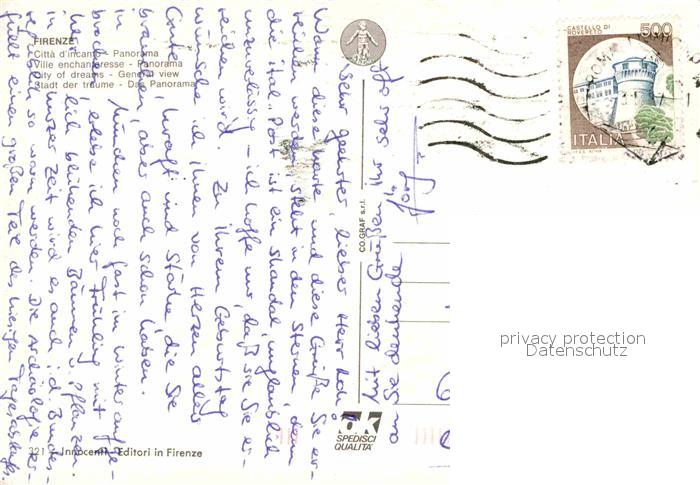 FIRENZE
Città d'incanto - Panorama
Ville enchanteresse - Panorama
City of dreams - General view
Stadt der träume - Das Panorama
321 - Innocenti - Editori in Firenze
CO.GRAF s.r.l.
SPEDISCI
QUALITÀ
CASTELLO DI
ROVERETO
500
ITALIA
I.P.Z.S. ROMA
privacy protection
Datenschutz
Sehr geehrter, lieber Herr
Wann diese Karte und diese Grüße Sie er-
reichen werden, steht in den Sternen, denn
die ital. Post ist ein Skandal, unglaublich
unzuverlässig - ich hoffe nur, daß sie Sie er-
reichen wird. Zu Ihrem Geburtstag
wünsche ich Ihnen von Herzen alles
Gute, Kraft und Stärke, die Sie
brauchen, aber auch schon haben.
In München noch fast im Winter aufge-
brochen, erlebe ich hier Frühling mit
herrlich blühenden Bäumen u. Pflanzen
in kurzer Zeit wird es auch i.d. Bundes-
republik so warm werden. Die Archäologie er-
füllt einen großen Teil des hiesigen Tagesablaufs.
Mit lieben Grüßen